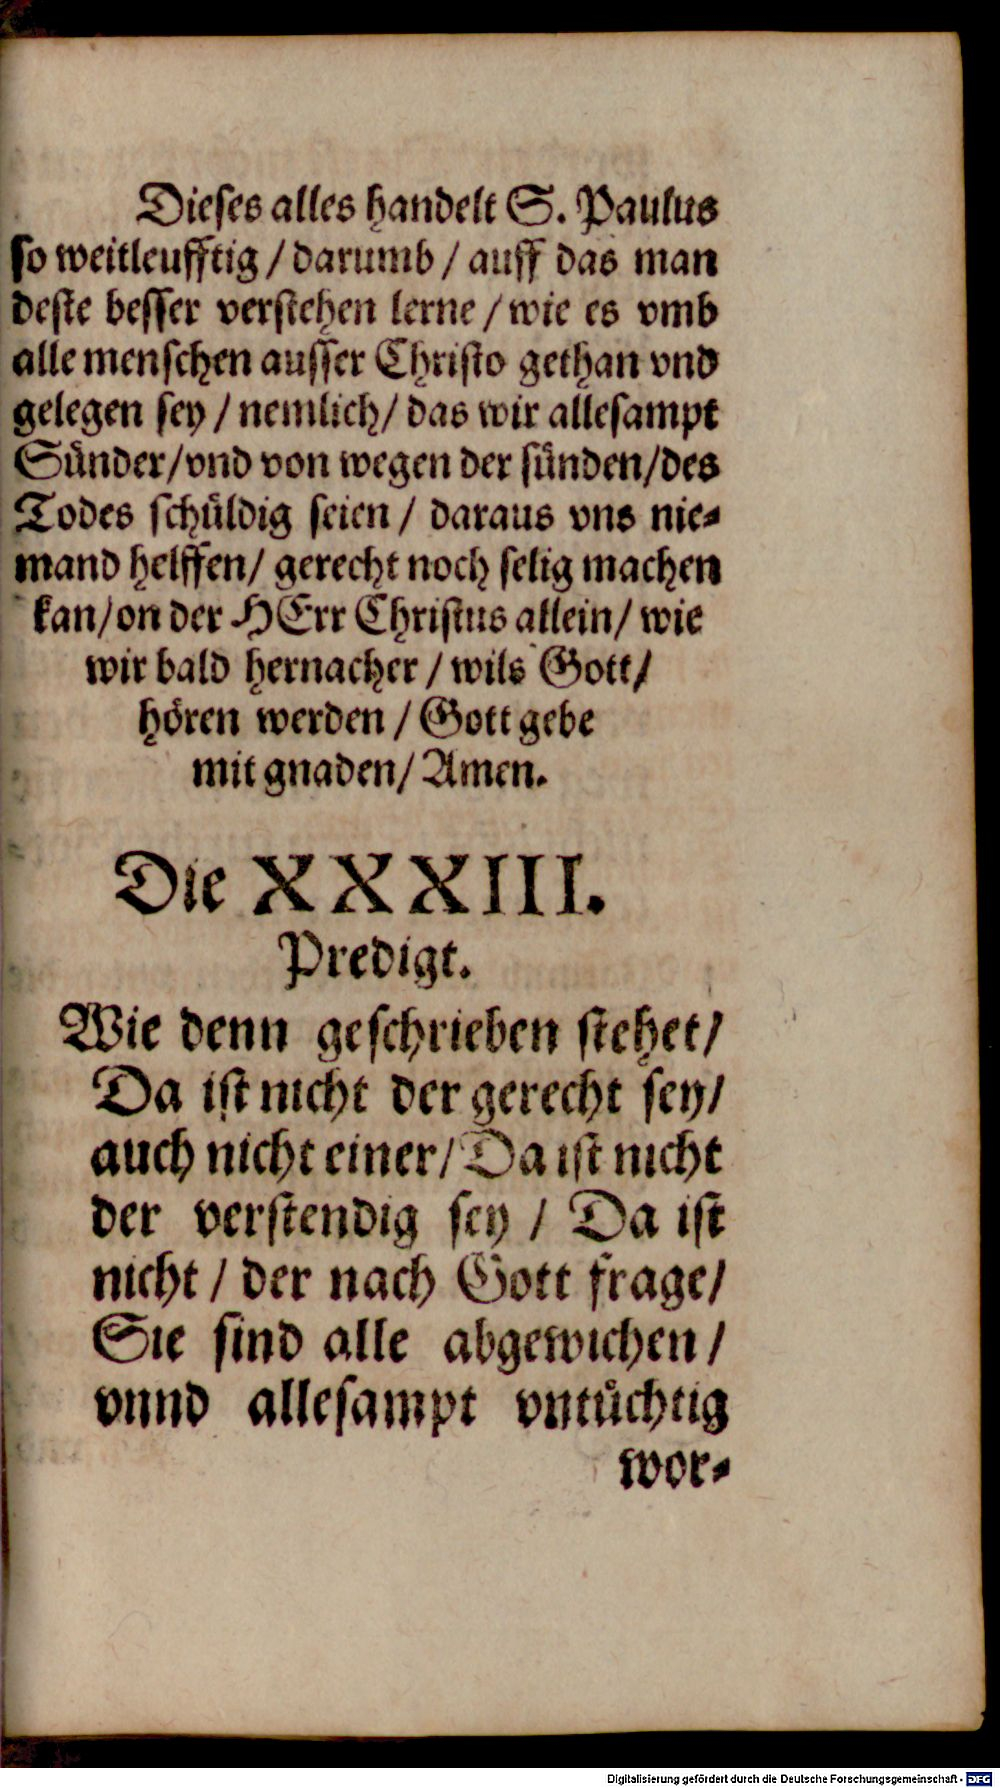 Dieses alles handelt S. Paulus
so weitleufftig / darumb / auff das man
deste besser verstehen lerne / wie es vmb
alle menschen ausser Christo gethan vnd
gelegen sey / nemlich / das wir allesampt
Sünder / vnd von wegen der sünden / des
Todes schüldig seien / daraus vns nie-
mand helffen / gerecht noch selig machen
kan / on der HErr Christus allein / wie
wir bald hernacher / wils Gott /
hören werden / Gott gebe
mit gnaden / Amen.
Die XXXIII.
Predigt.
Wie denn geschrieben stehet /
Da ist nicht der gerecht sey /
auch nicht einer / Da ist nicht
der verstendig sey / Da ist
nicht / der nach Gott frage /
Sie sind alle abgewichen /
vnnd allesampt vntüchtig
wor-
Digitalisierung gefördert durch die Deutsche Forschungsgemeinschaft - DFG